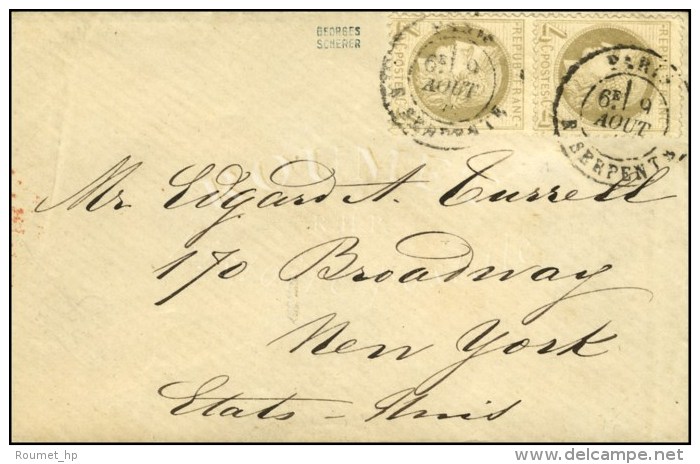 GEORGES
SCHERER
REPUB FRANC
REPUB FRANC
POSTES
POSTES
PARIS
6E 9
AOUT
6E 9
AOUT
R SERPENTE
Mr Edgard A. Turrell
170 Broadway
New York
Etats-Unis
Roumet_hp
delcampe.net